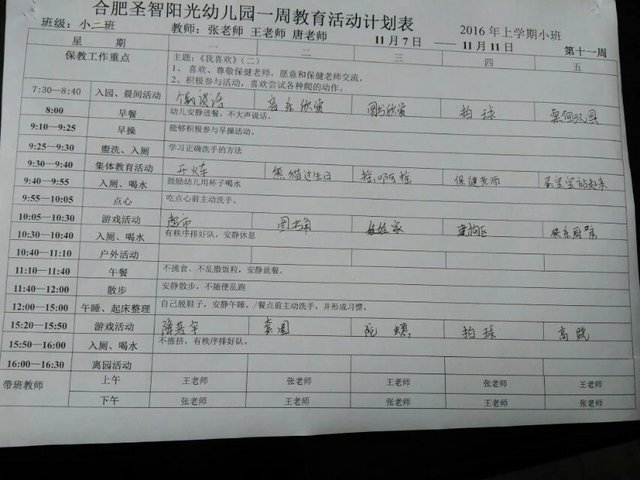 合肥圣智阳光幼儿园一周教育活动计划表
班级：小二班 教师：张老师 王老师 唐老师 2016年上学期小班
11月7日 —— 11月11日 第十一周
星 期 一 二 三 四 五
保教工作重点 主题：《我喜欢》（二）
1、喜欢、尊敬保健老师，愿意和保健老师交流。
2、积极参与活动，喜欢尝试各种爬的动作。
7:30—8:40 入园、晨间活动 个别谈话 音乐欣赏 图书欣赏 拍球 桌面玩具
8:00 早餐 幼儿安静进餐，不大声说话。
9:10—9:25 早操 能够积极参与早操活动。
9:25—9:30 盥洗、入厕 学习正确洗手的方法
9:30—9:40 集体教育活动 开火车 熊猫过生日 保健老师
9:40—9:55 入厕、喝水 鼓励幼儿用杯子喝水
9:55—10:05 点心 吃点心前主动洗手。
10:05—10:30 游戏活动 超市 图书角 娃娃家 建构区
10:30—10:40 入厕、喝水 有秩序排好队，安静休息
10:40—11:10 户外活动
11:10—11:40 午餐 不挑食、不乱撒饭粒，安静就餐。
11:40—12:00 散步 安静散步，不随便乱跑
12:00—15:00 午睡、起床整理 自己脱鞋子，安静午睡。/餐点前主动洗手，并形成习惯。
15:20—15:50 游戏活动 套圈 陀螺 拍球 高跷
15:50—16:00 入厕、喝水 不推挤，有秩序排好队。
16:00—16:30 离园活动
带班教师 上午 王老师 张老师 王老师 张老师 王老师
下午 张老师 王老师 张老师 王老师 张老师